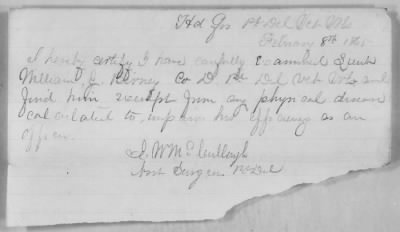 Hd Qrs 1st Del Vet Vols
February 8th 1865
I hereby certify I have carefully Examined Lieut
William J. Co D. 1st Del Vet Vols and
find him exempt from any physical disease
calculated to impair his efficiency as an
officer.
J. W. McCullough
Asst Surgeon 1st Del